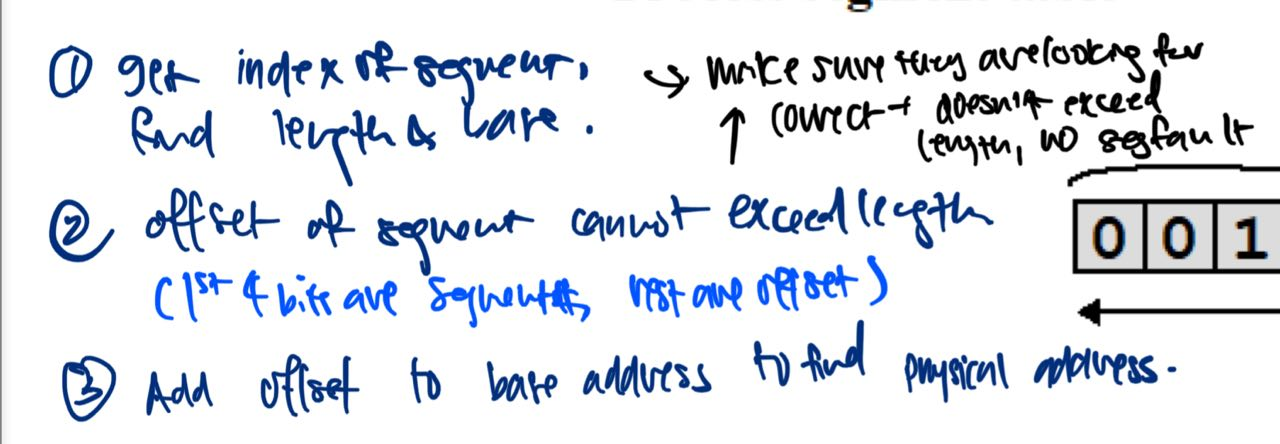 ① get index of segment,
find length & base.
→ make sure they are looking for
↑ correct + doesn't exceed
length, no segfault
② offset of segment cannot exceed length
(1st 4 bits are segment #, rest are offset)
0 0 1
③ Add offset to base address to find physical address.